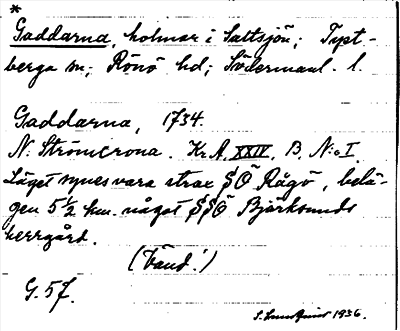 *
Gaddarna, holmar i Saltsjön; Tyst-
berga sn; Rönö hd; Södermanl. l.
Gaddarna, 1734.
N: Strömcrona. Kr. A. XXIV. B. N:o I.
Läget synes vara strax SÖ Rågö, belä-
gen 5 1/2 km. något SSÖ Björksunds
herrgård.
(Vänd!)
G. 57.
S. Lundqvist 1936.